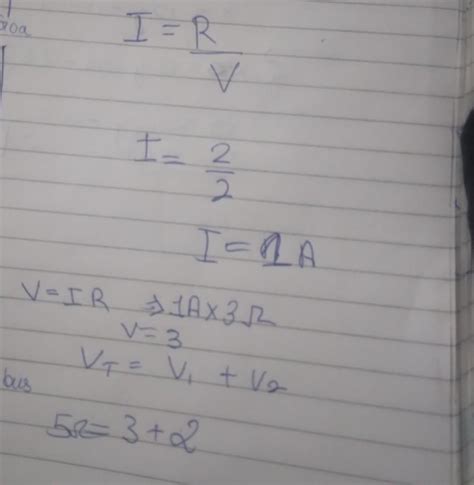 I = R
V
I = 2
2
I = 1A
V = IR ⇒ 1A × 3Ω
V = 3
V_T = V₁ + V₂
5Ω = 3 + 2